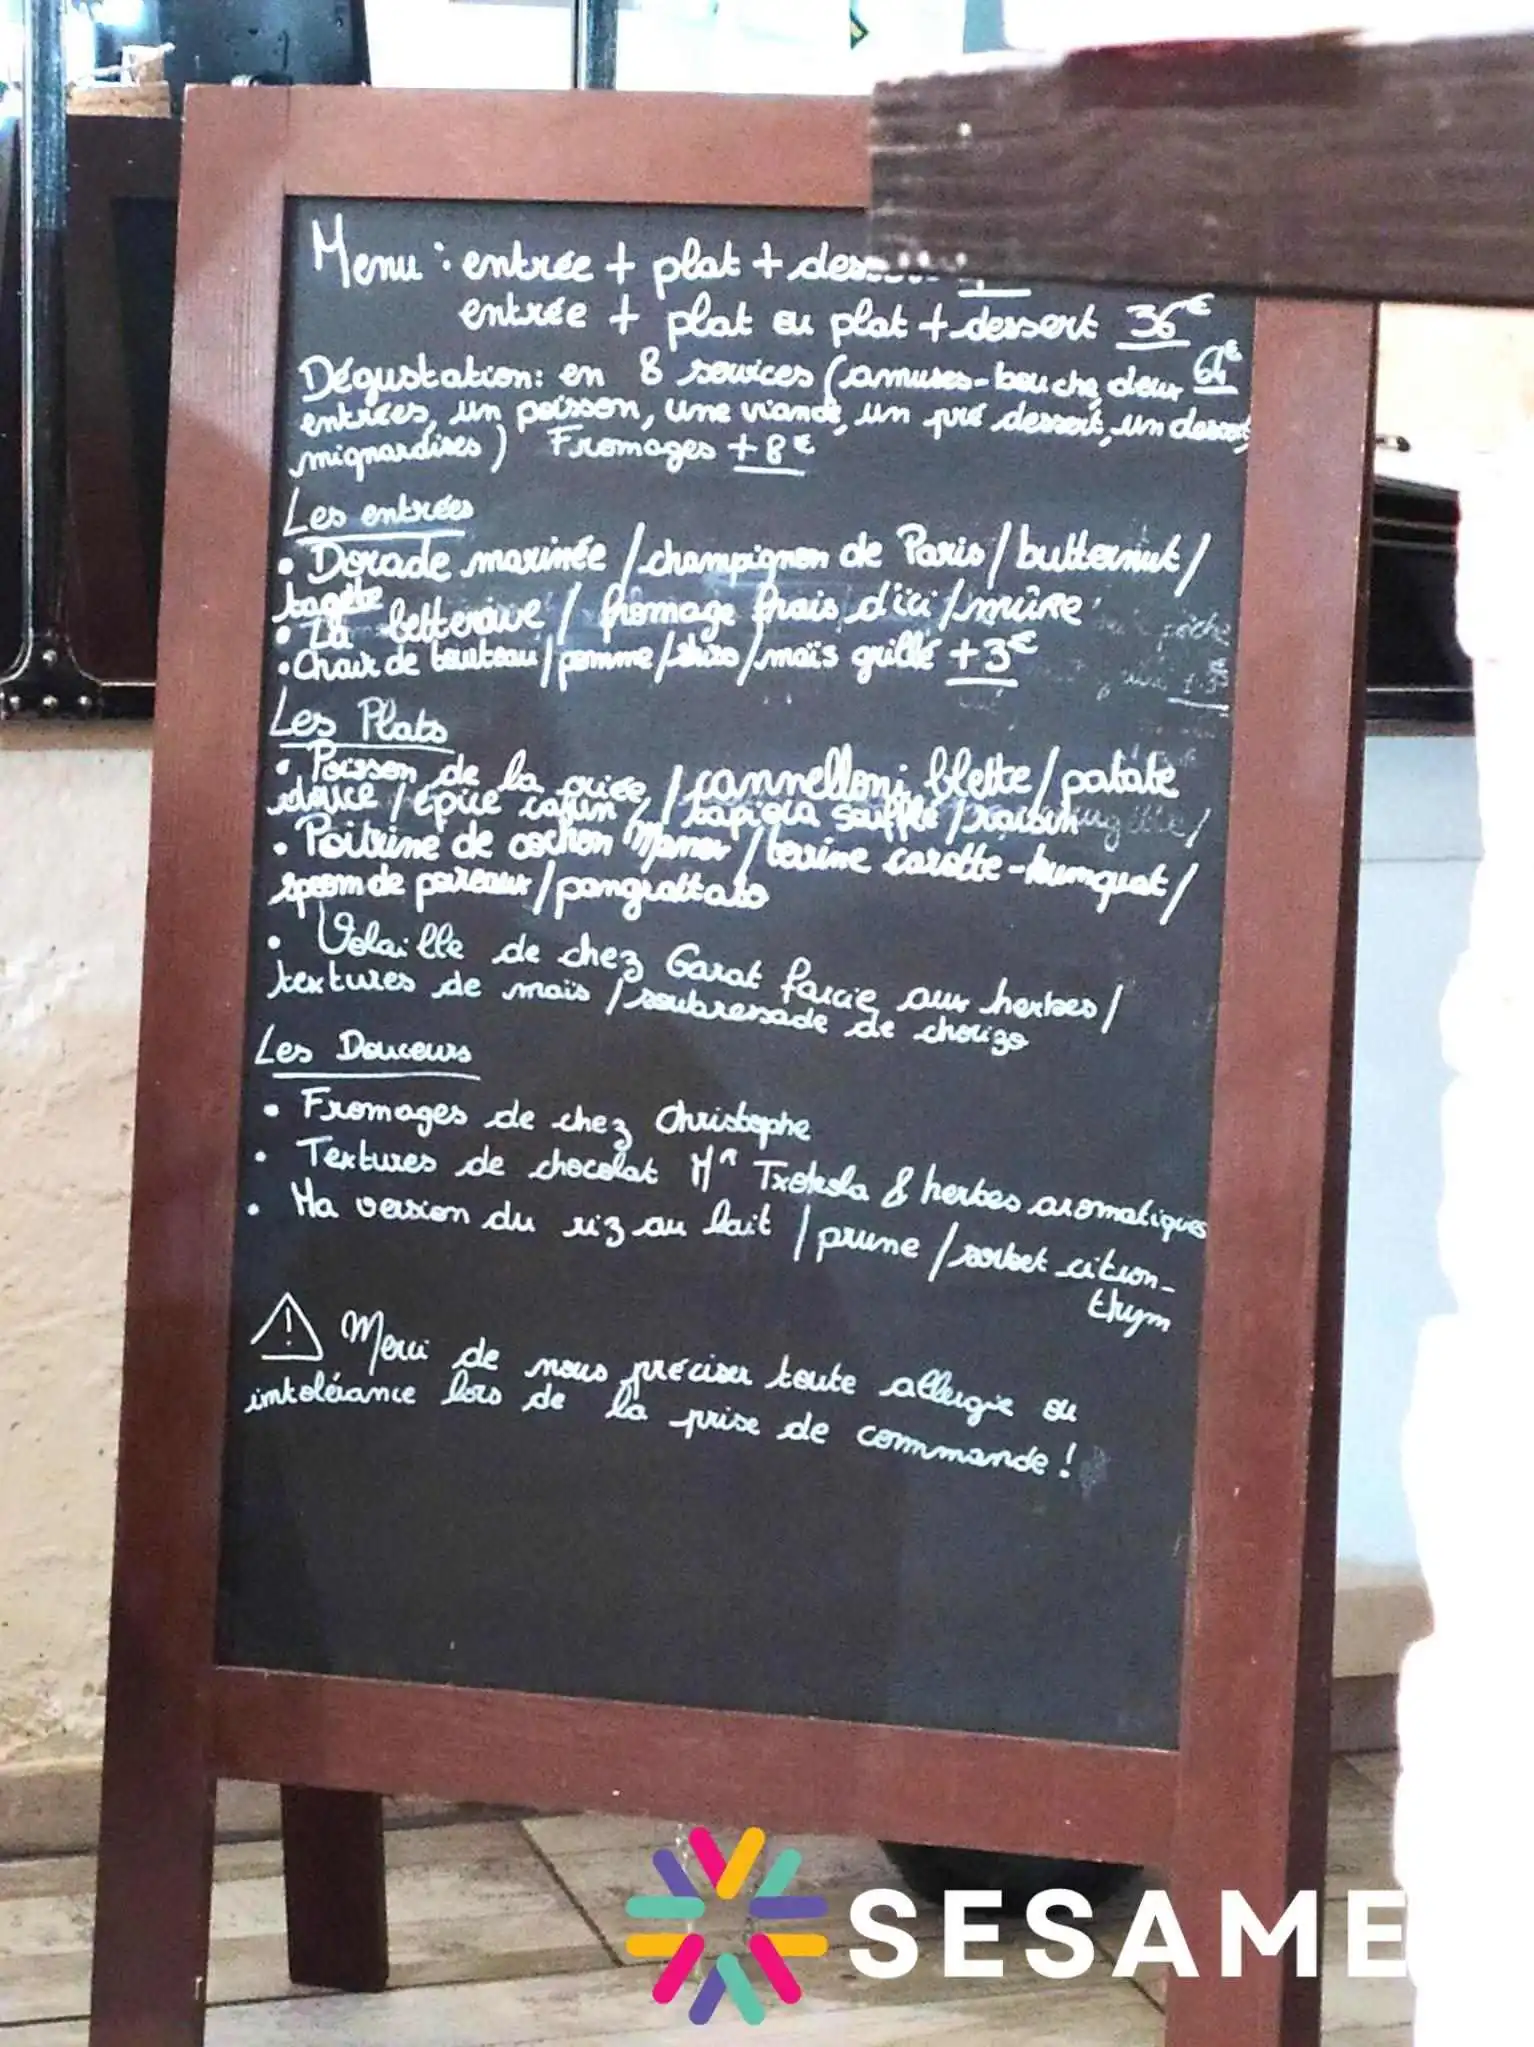 Menu : entrée + plat + des
entrée + plat ou plat + dessert 36€
Dégustation: en 8 services (amuses-bouche, deux 64€
entrées, un poisson, une viande, un pré dessert, un dessert,
mignardises) Fromages +8€
Les entrées
• Dorade marinée / champignon de Paris / butternut /
tagète
• La betterave / fromage frais d'ici / mûre
• Chair de tourteau / pomme / shiso / maïs grillé +3€
Les Plats
• Poisson de la criée / cannelloni blette / patate
douce / épice cajun / tapioca soufflé / raisin
• Poitrine de cochon Manex / terrine carotte-kumquat /
spoom de poireaux / pangrattato
• Volaille de chez Garat farcie aux herbes /
textures de maïs / soubressade de chorizo
Les Douceurs
• Fromages de chez Christophe
• Textures de chocolat Mr Txokola & herbes aromatiques
• Ma version du riz au lait / prune / sorbet citron-
thym
Merci de nous préciser toute allergie ou
intolérance lors de la prise de commande !
SESAME